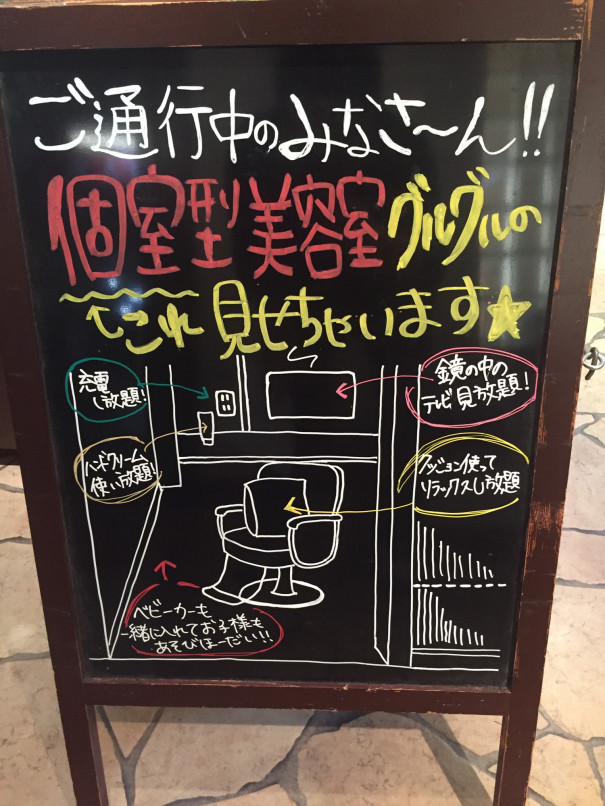 ご通行中のみなさ〜ん!!
個室型美容室グルグルの
これ見せちゃいます★
充電
し放題!
鏡の中の
テレビ見放題!
ハンドクリーム
使い放題!
クッション使って
リラックスし放題
ベビーカーも
一緒に入れてお子様も
あそびほーだい!!